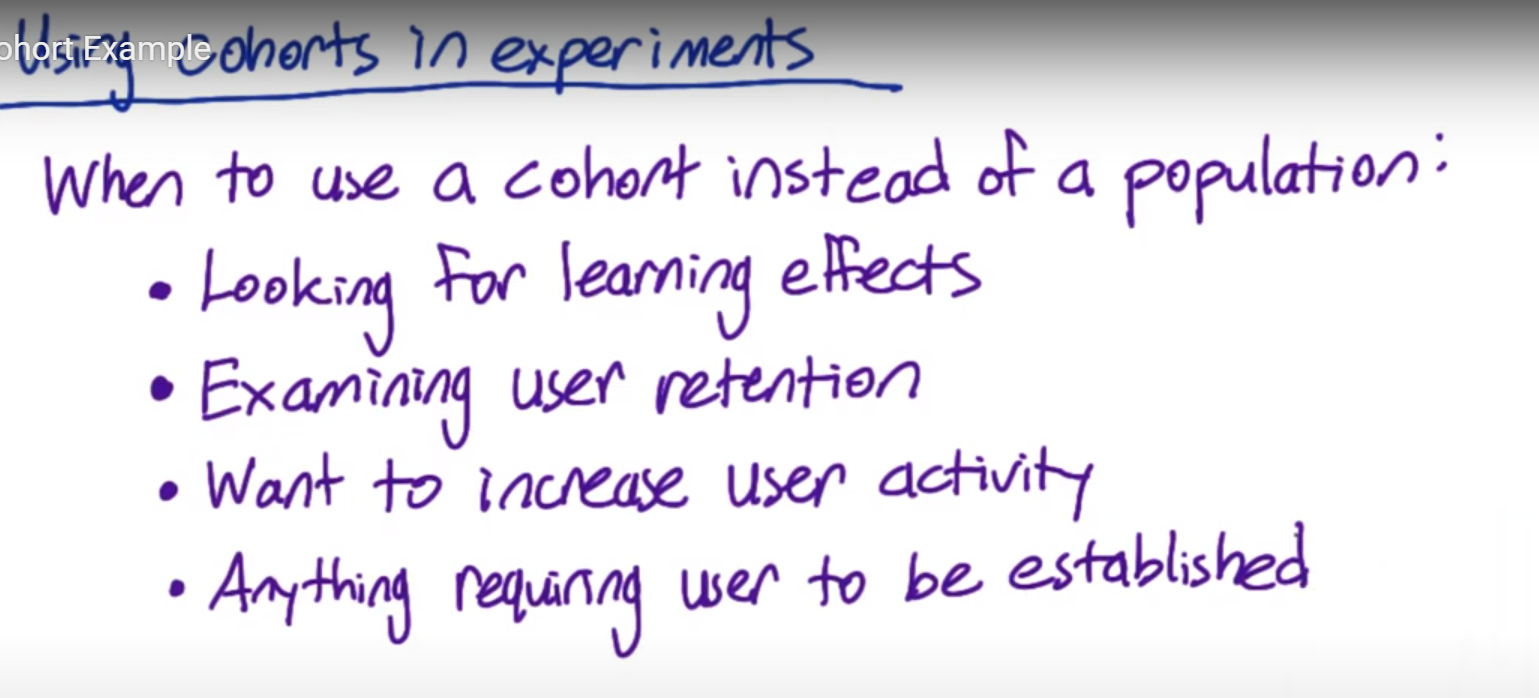 ohort Example
Using cohorts in experiments
When to use a cohort instead of a population:
• Looking for learning effects
• Examining user retention
• Want to increase user activity
• Anything requiring user to be established